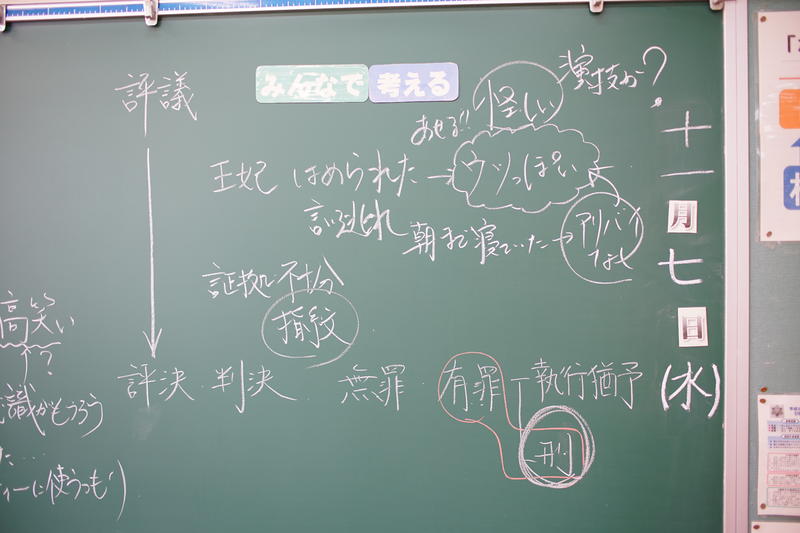 十一月七日(水)
みんなで 考える
評議
怪しい
演技か?
あせる!!
王妃 はめられた → ウソっぽい
言い逃れ
朝まで寝ていた → アリバイ
なし
証拠不十分
指紋
評決・判決 無罪・有罪 執行猶予
刑
高笑い
?
識がもうろう
た…
ィーに使うつも)